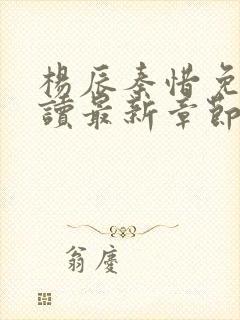 楊辰秦惜免
讀最新章節
翁慶